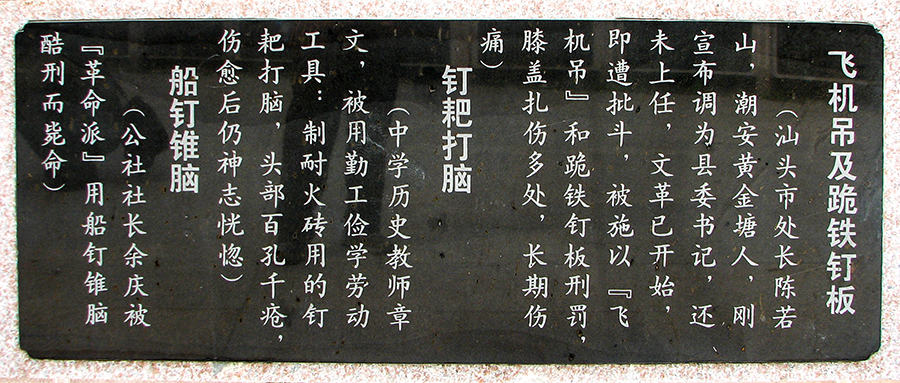 飞机吊及跪铁钉板
（汕头市处长陈若
山，潮安黄金塘人，刚
宣布调为县委书记，还
未上任，文革已开始，
即遭批斗，被施以『飞
机吊』和跪铁钉板刑罚，
膝盖扎伤多处，长期伤
痛）
钉耙打脑
（中学历史教师章
文，被用勤工俭学劳动
工具：制耐火砖用的钉
耙打脑，头部百孔千疮，
伤愈后仍神志恍惚）
船钉锥脑
（公社社长余庆被
『革命派』用船钉锥脑
酷刑而毙命）